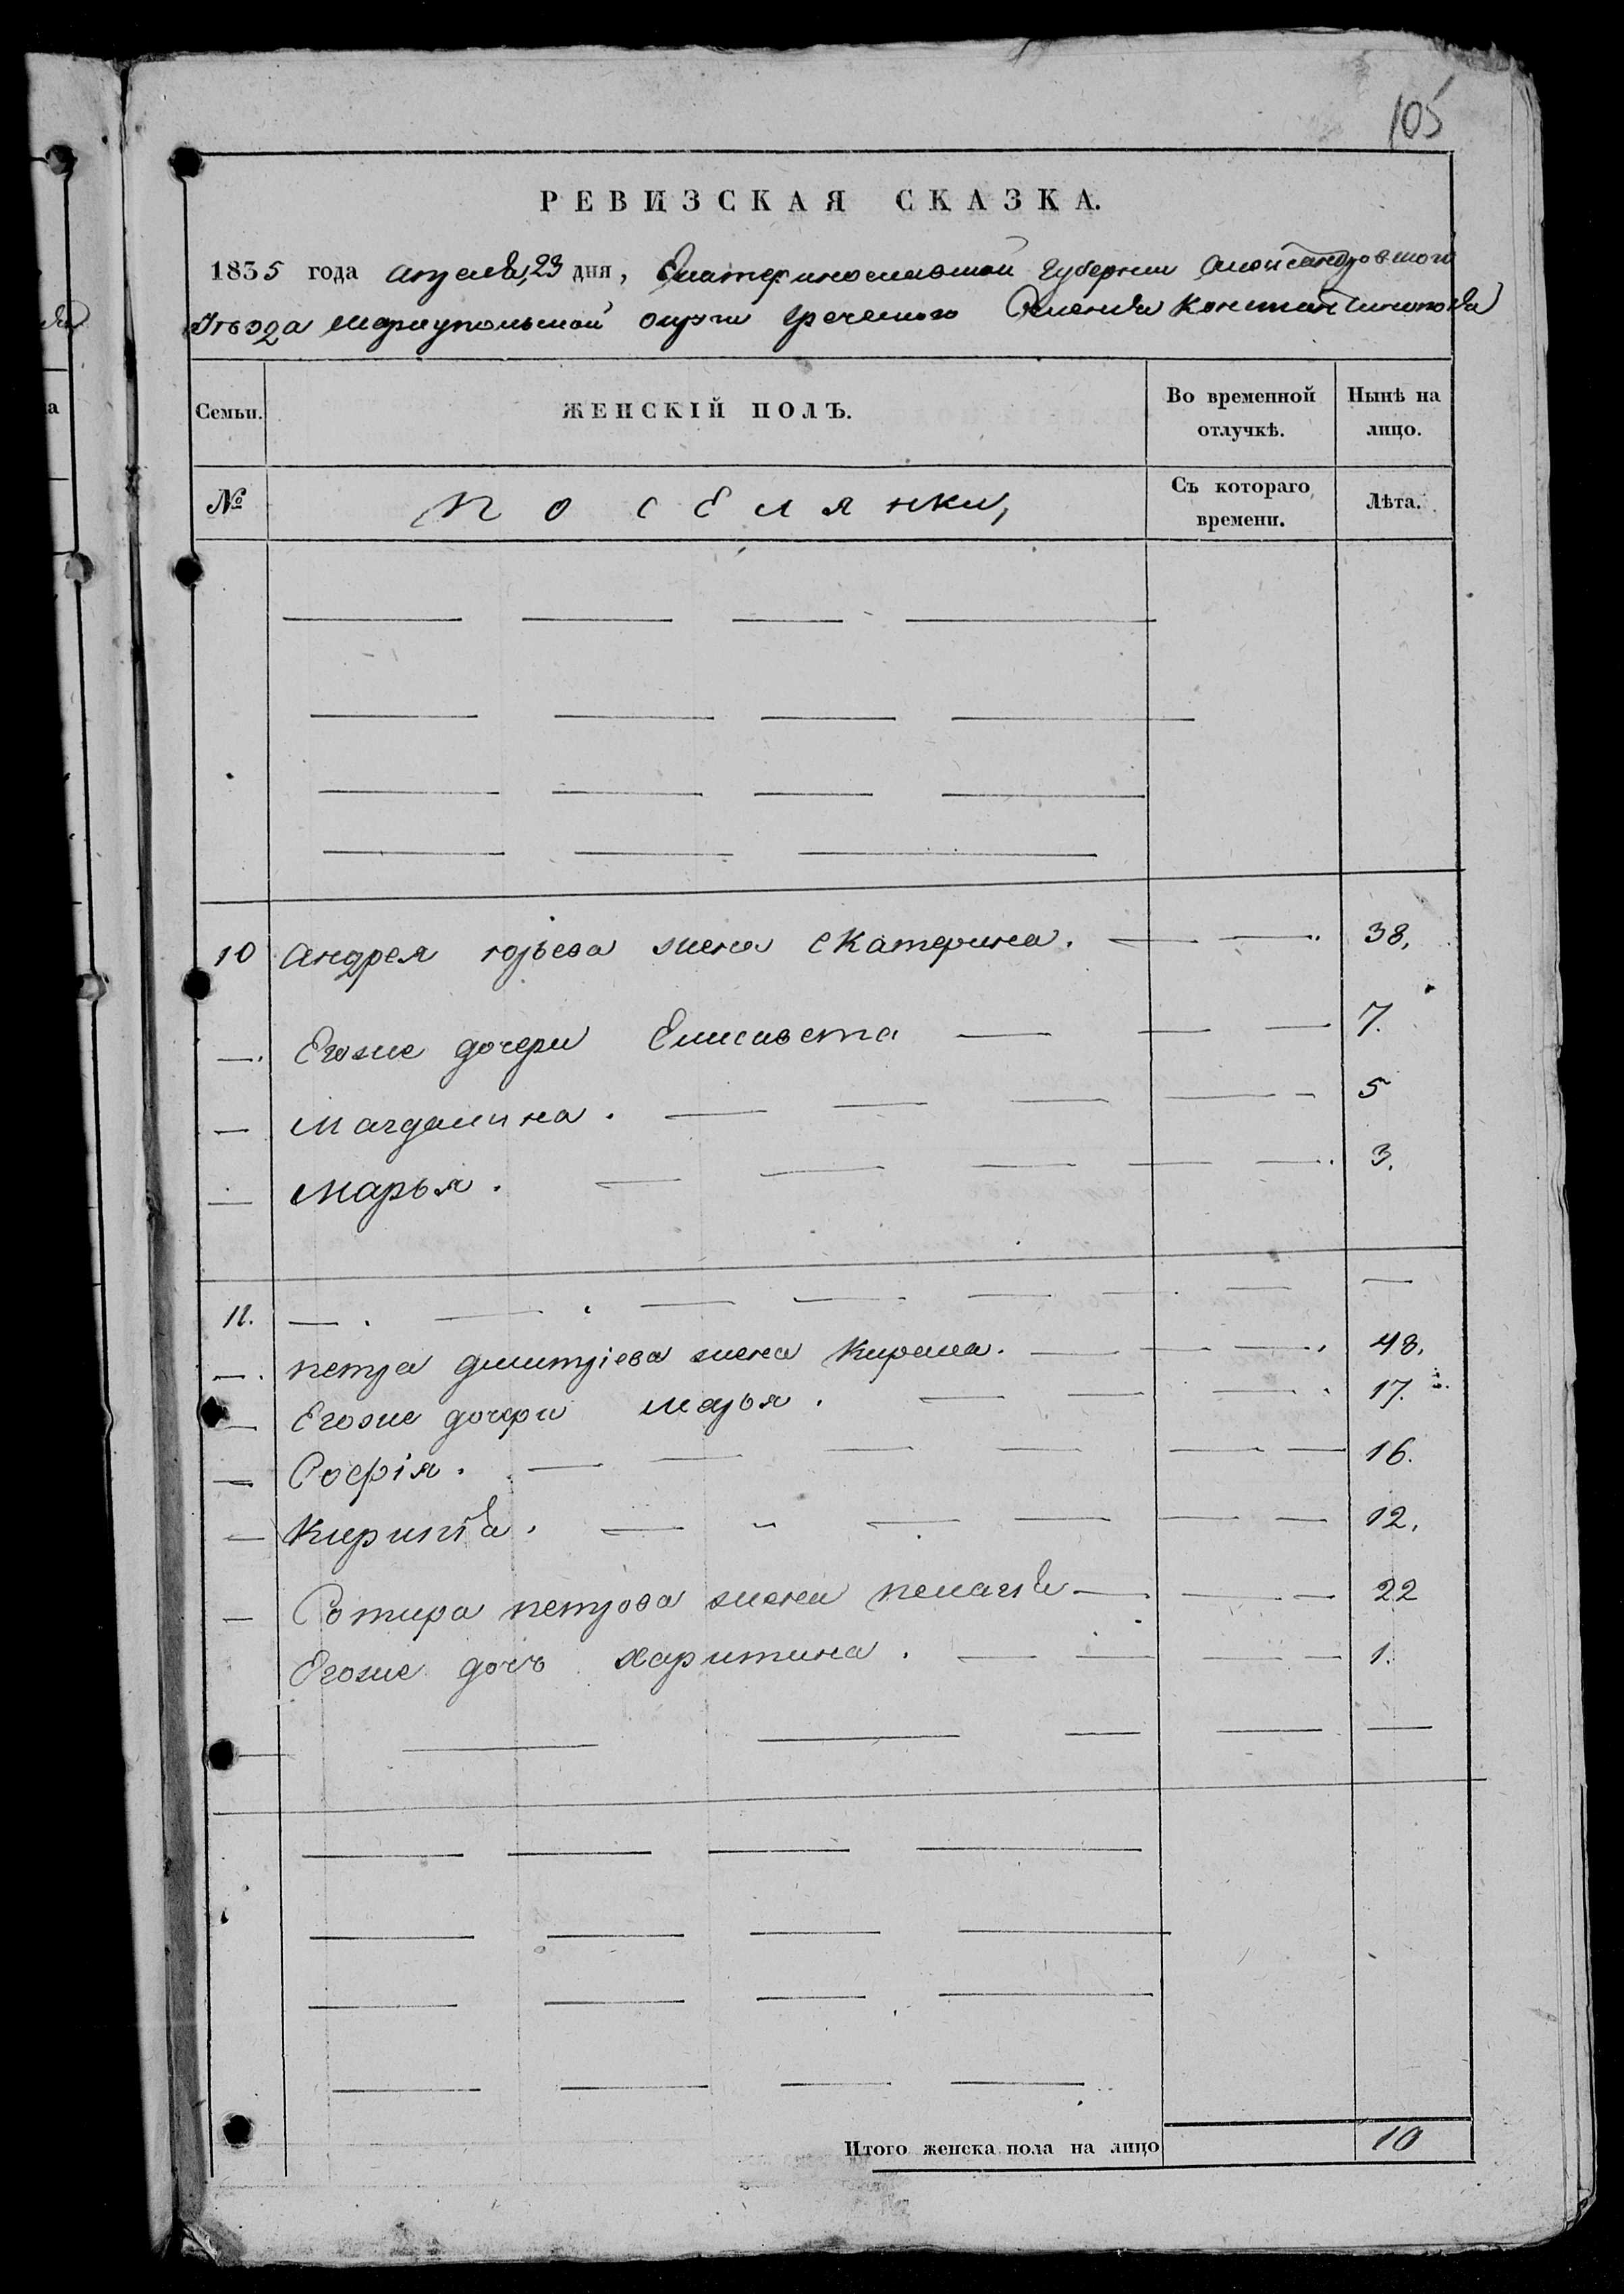 105
РЕВИЗСКАЯ СКАЗКА.
1835 года апреля 23 дня, Екатеринославской Губернии Александровского
Уѣзда Мариупольской округи Греческого Селенія Константинополя
Семьи. ЖЕНСКІЙ ПОЛЪ. Во временной отлучкѣ. Нынѣ на лицо.
№ Поселянки, Съ котораго времени. Лѣта.
10 Андрея юрьева жена екатерина. 38.
Егоже дочери Елисавета 7.
магдалина. 5
марья. 3.
11.
петра дмитріева жена Кирана. 48.
Егоже дочери марья. 17.
Софія. 16.
Киріакія. 12.
Сотира петрова жена пелагія 22
Егоже дочь харитина. 1.
Итого женска пола на лицо 10